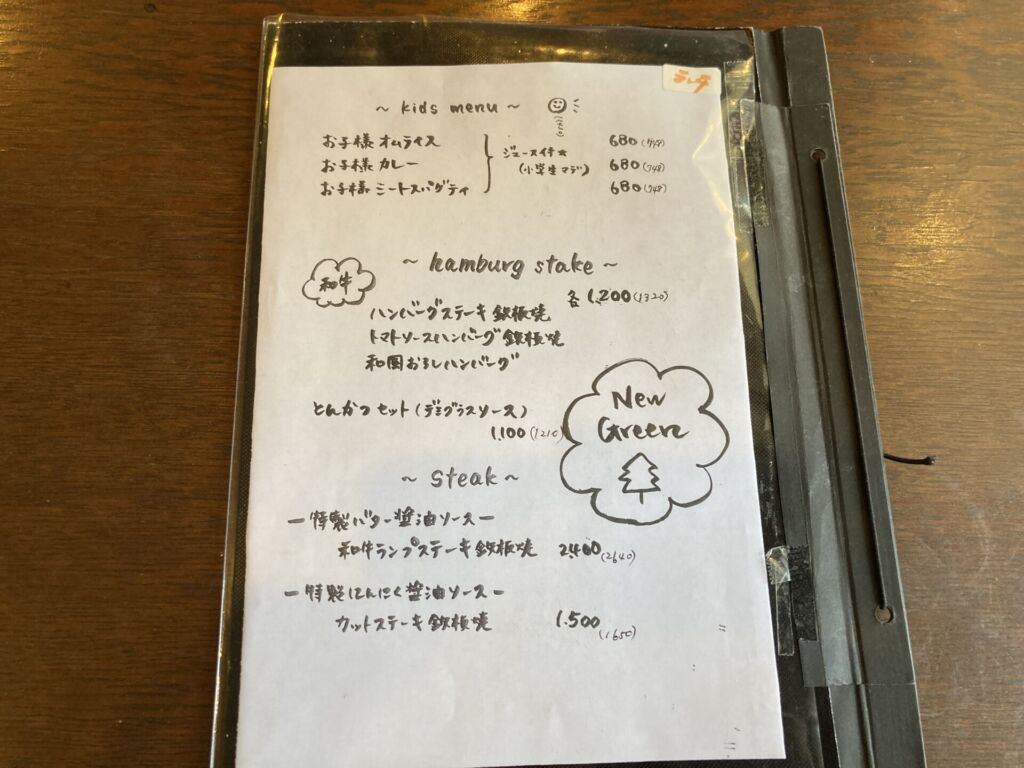 ランチ
~ kids menu ~
お子様 オムライス 680 (748)
お子様 カレー 680 (748)
お子様 ミートスパゲティ 680 (748)
ジュース付★
(小学生マデ)
~ hamburg stake ~
和牛
各 1.200 (1320)
ハンバーグステーキ 鉄板焼
トマトソースハンバーグ 鉄板焼
和風おろしハンバーグ
とんかつ セット (デミグラスソース)
1.100 (1210)
New
Green
~ steak ~
ー特製バター醤油ソースー
和牛ランプステーキ 鉄板焼 2.400 (2640)
ー特製にんにく醤油ソースー
カットステーキ 鉄板焼 1.500 (1650)